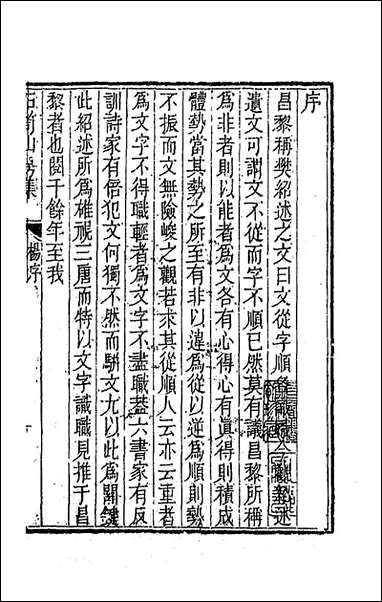 序
昌黎稱樊紹述之文曰文從字順各識職今觀紹述
遺文可謂文不從而字不順已然莫有議昌黎所稱
為非者則以能者為文各有心得心有真得則積成
體勢當其勢之所至有非以違為從以逆為順則勢
不振而文無險峻之觀若求其從順人云亦云重者
為文字不得職輕者為文字不盡職葢六書家有反
訓詩家有倍犯文何獨不然而駢文尤以此為關鍵
此紹述所為雄視三唐而特以文字識職見推于昌
黎者也閱千餘年至我
石笥山房集
楊序